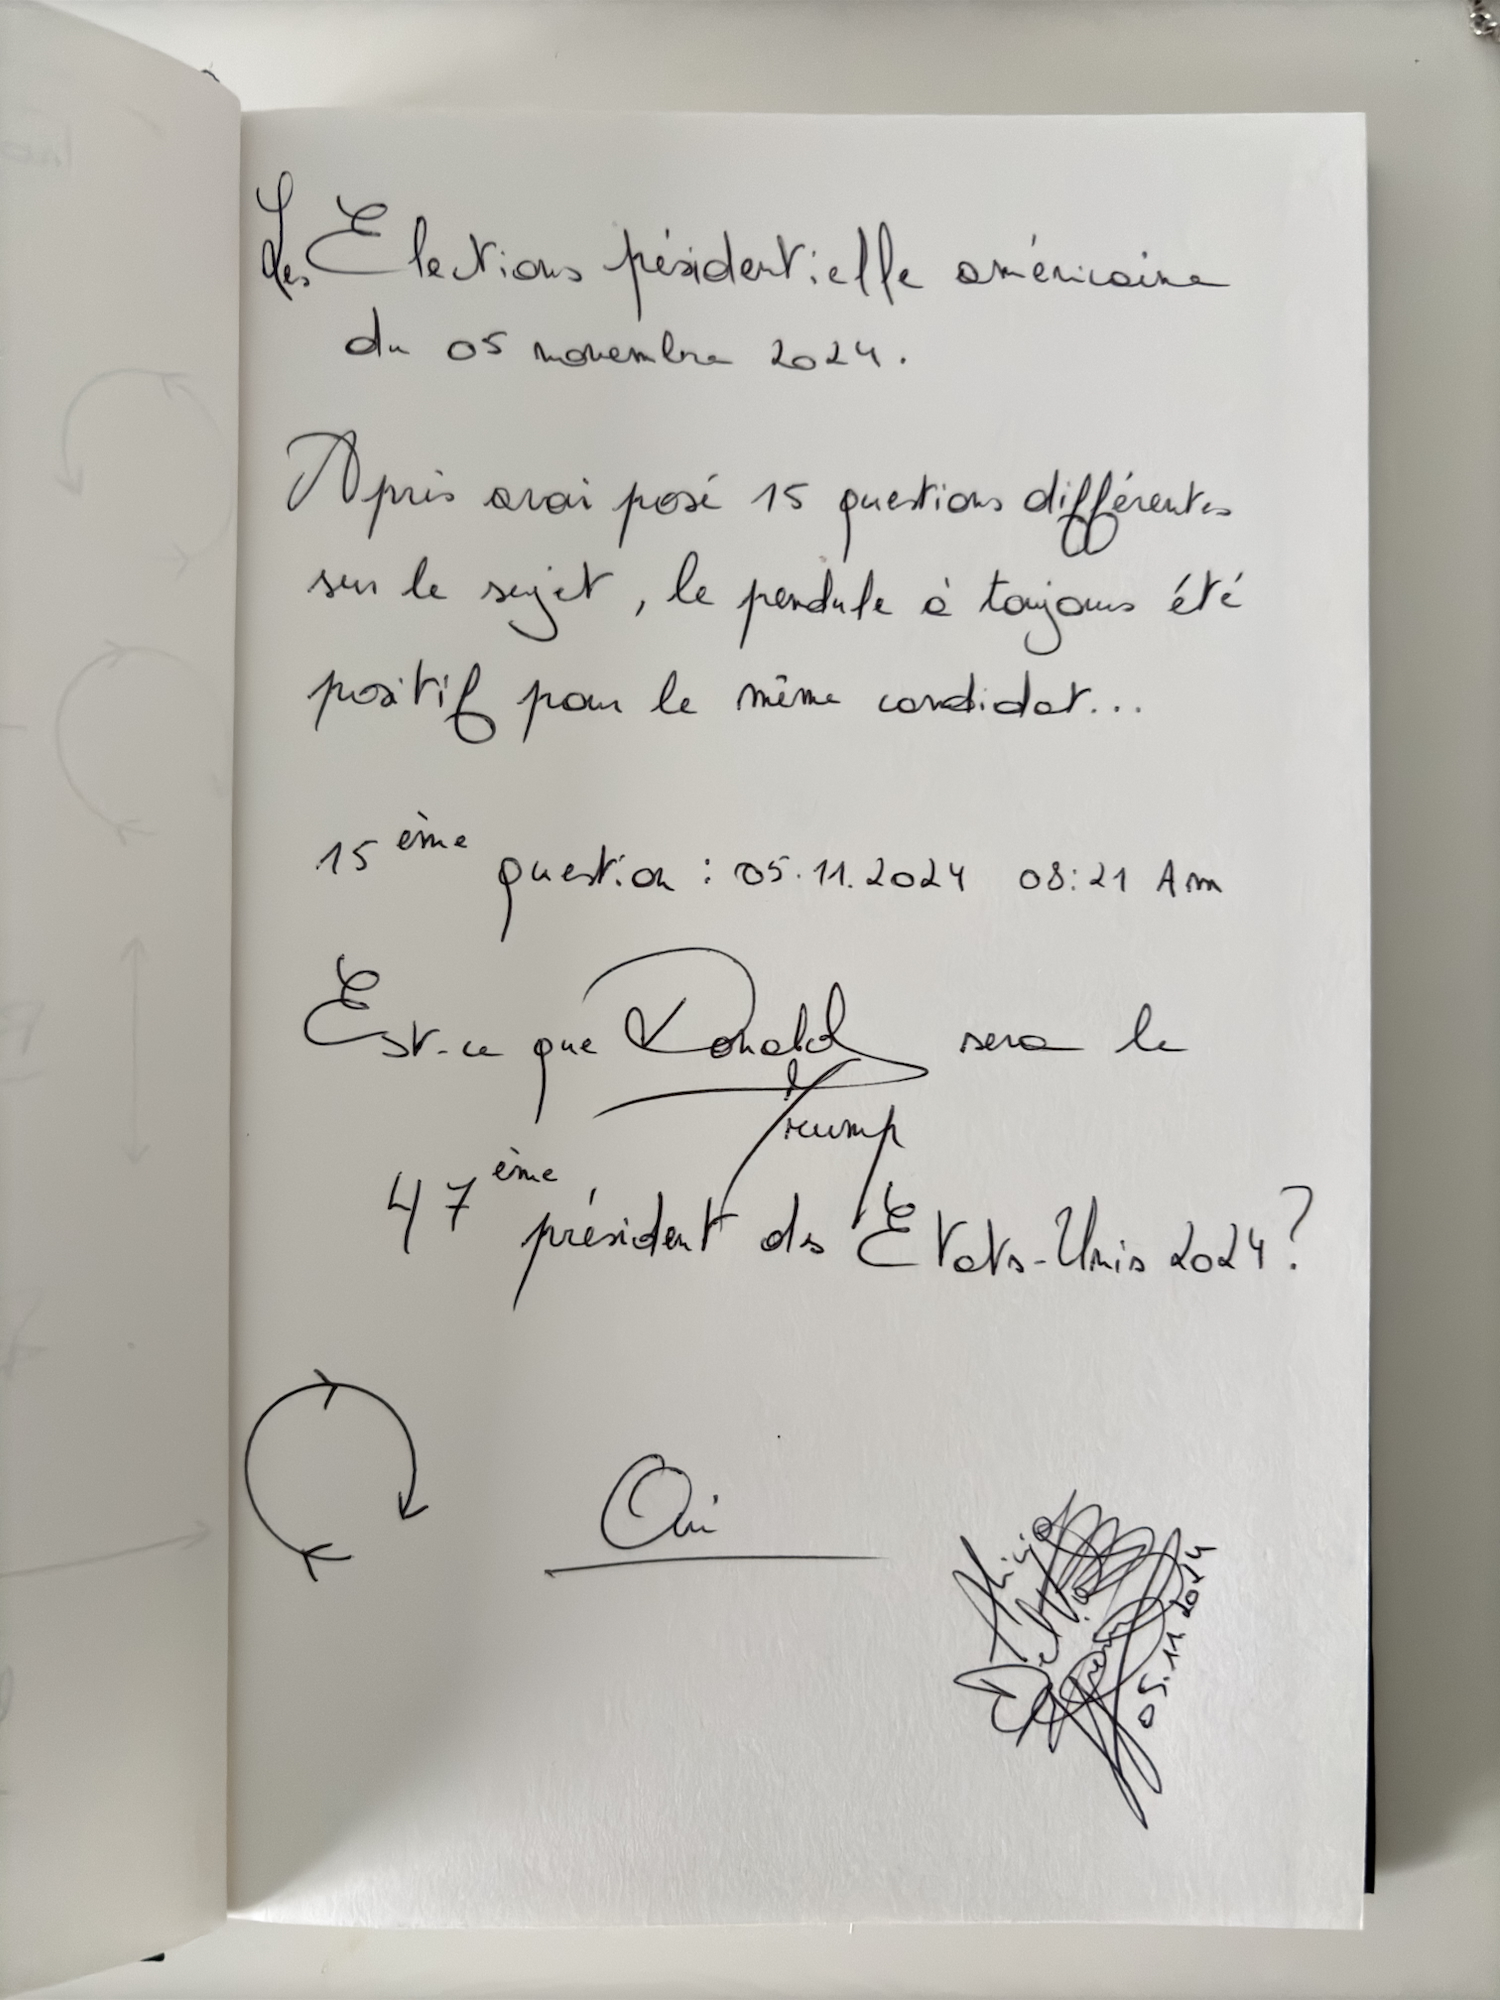 Les Elections pésidentielle américaine
du 05 novembre 2024.
Après avai posé 15 questions différentes
sur le sujet, le pendule à toujours été
positif pour le même candidat...
15 ème question : 05.11.2024 08:21 Am
Est-ce que Donald sera le
Trump
47 ème président des Etats-Unis 2024?
Oui
05.11.2024